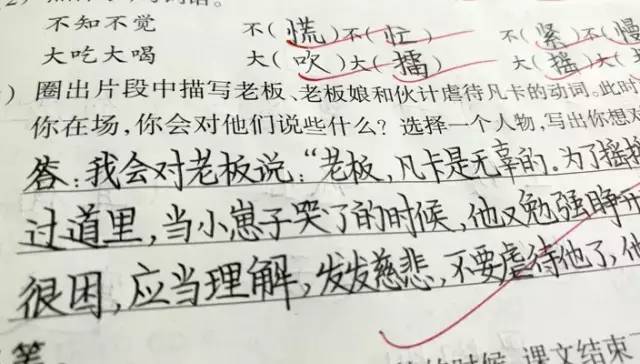 不知不觉 不(慌)不(忙) 不(紧)不(慢
大吃大喝 大(吹)大(擂) 大(摇)大(
)圈出片段中描写老板、老板娘和伙计虐待凡卡的动词。此时
你在场,你会对他们说些什么?选择一个人物,写出你想对
答:我会对老板说:“老板,凡卡是无辜的。为了摇
过道里,当小崽子哭了的时候,他又勉强睁开
很困,应当理解,发发慈悲,不要虐待他了,他
答
的时候,课文结束